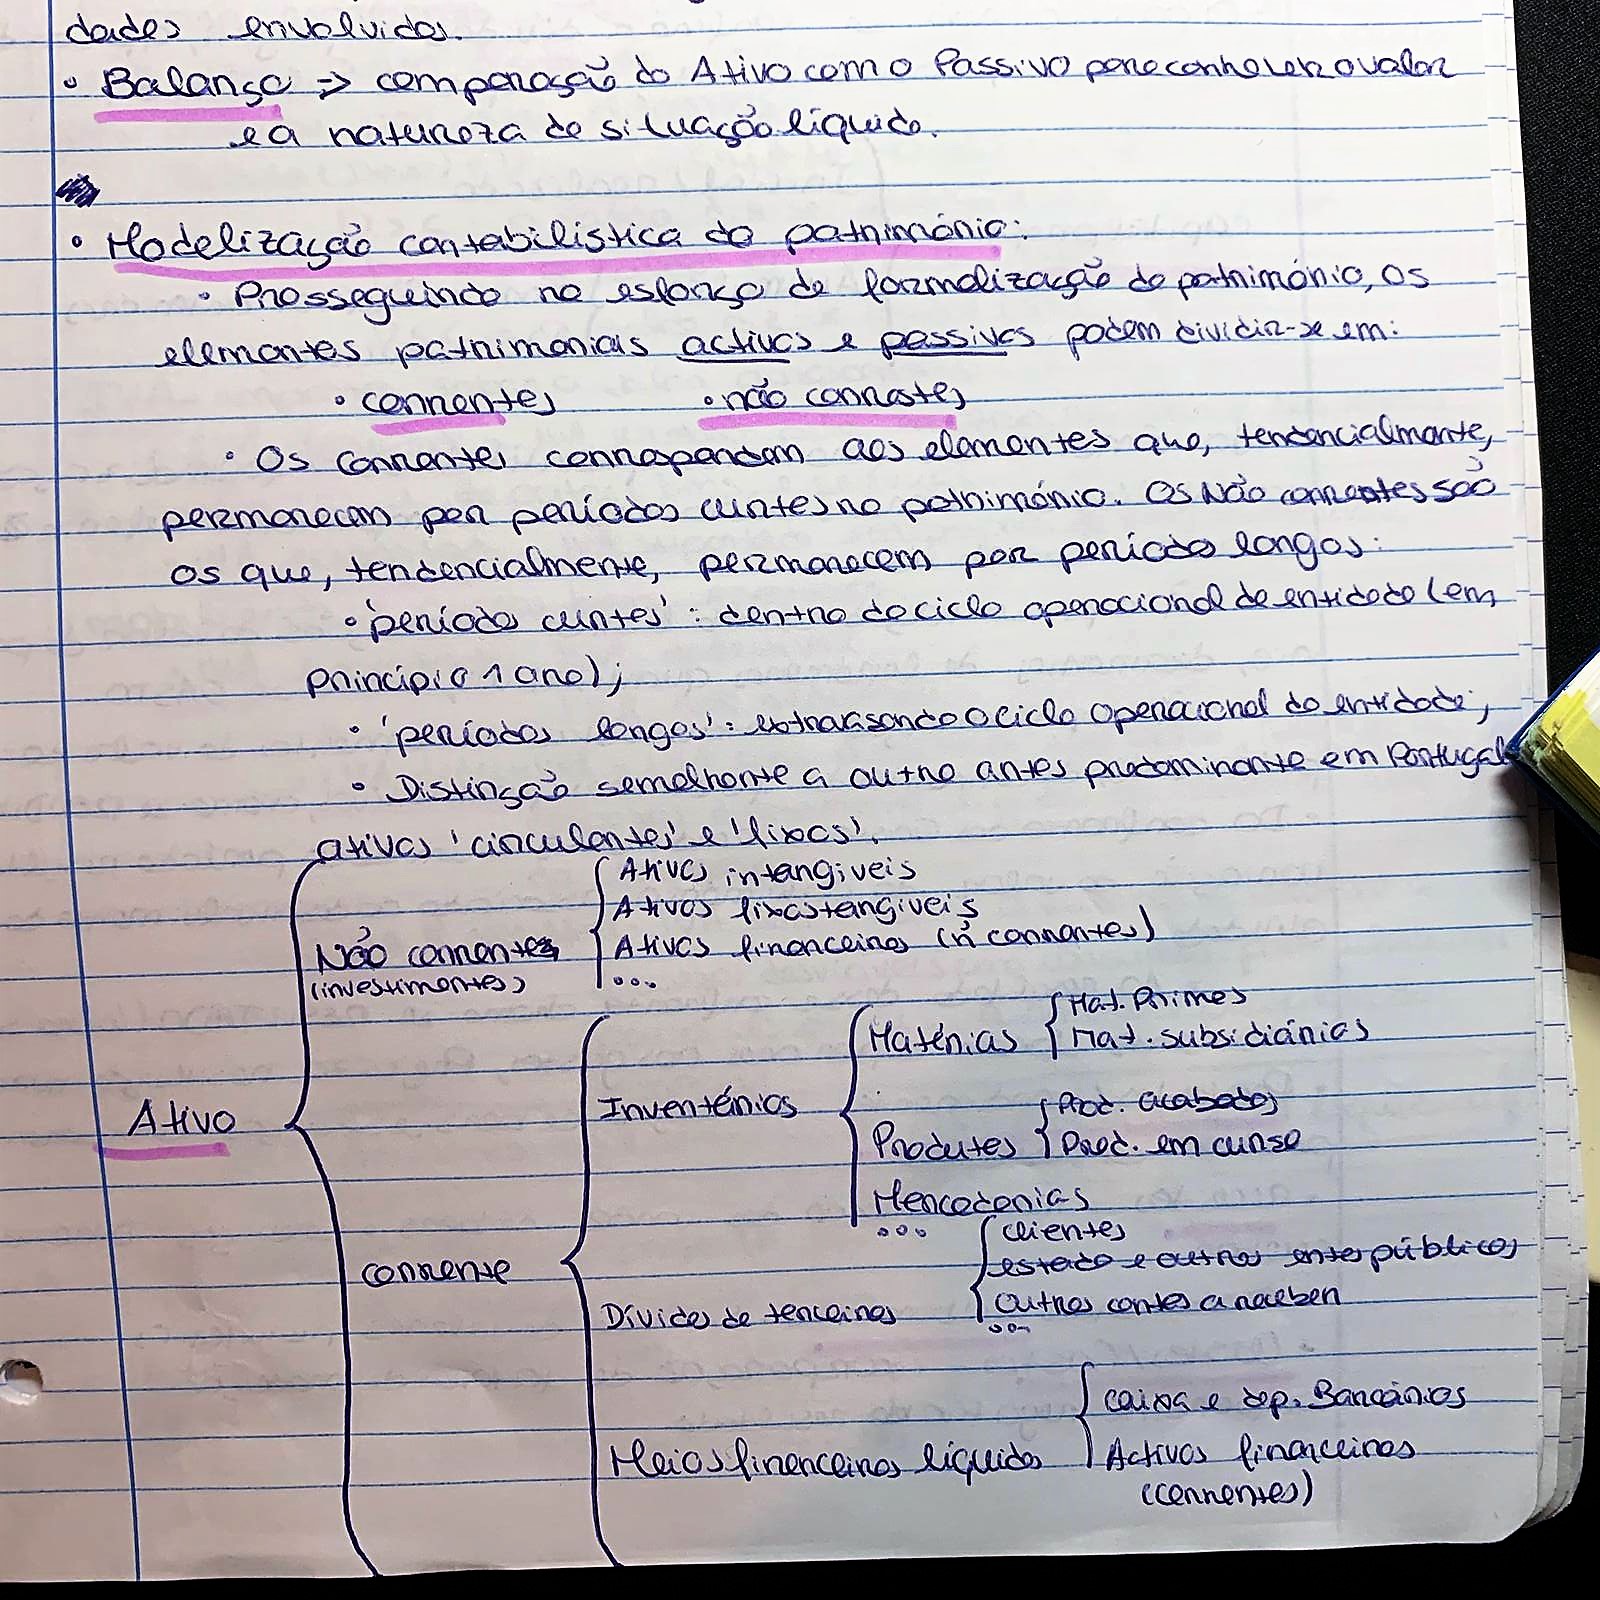 dades envolvidas.
• Balanço => comparação do Ativo com o Passivo para conhecer o valor
e a natureza da situação líquida.
• Modelização contabilística do património:
• Prosseguindo no esforço de formalização do património, os
elementos patrimoniais activos e passivos podem dividir-se em:
• correntes • não correntes
• Os correntes correspondem aos elementos que, tendencialmente,
permanecem por períodos curtos no património. Os Não correntes são
os que, tendencialmente, permanecem por períodos longos:
• 'períodos curtos': dentro do ciclo operacional da entidade (em
princípio 1 ano);
• 'períodos longos': extravasando o ciclo operacional da entidade;
• Distinção semelhante a outra antes predominante em Portugal
ativos 'circulantes' e 'fixos'.
Ativos intangiveis
Ativos fixos tangiveis
Não correntes Ativos financeiros (ñ correntes)
(investimentos) ...
Mat. Primas
Matérias Mat. subsidiárias
Ativo Inventários Prod. acabados
Produtos Prod. em curso
Mercadorias
...
Clientes
corrente estado e outros entes públicos
Dívidas de terceiros Outras contas a receber
...
Caixa e dep. Bancários
Meios financeiros líquidos Activos financeiros
(correntes)